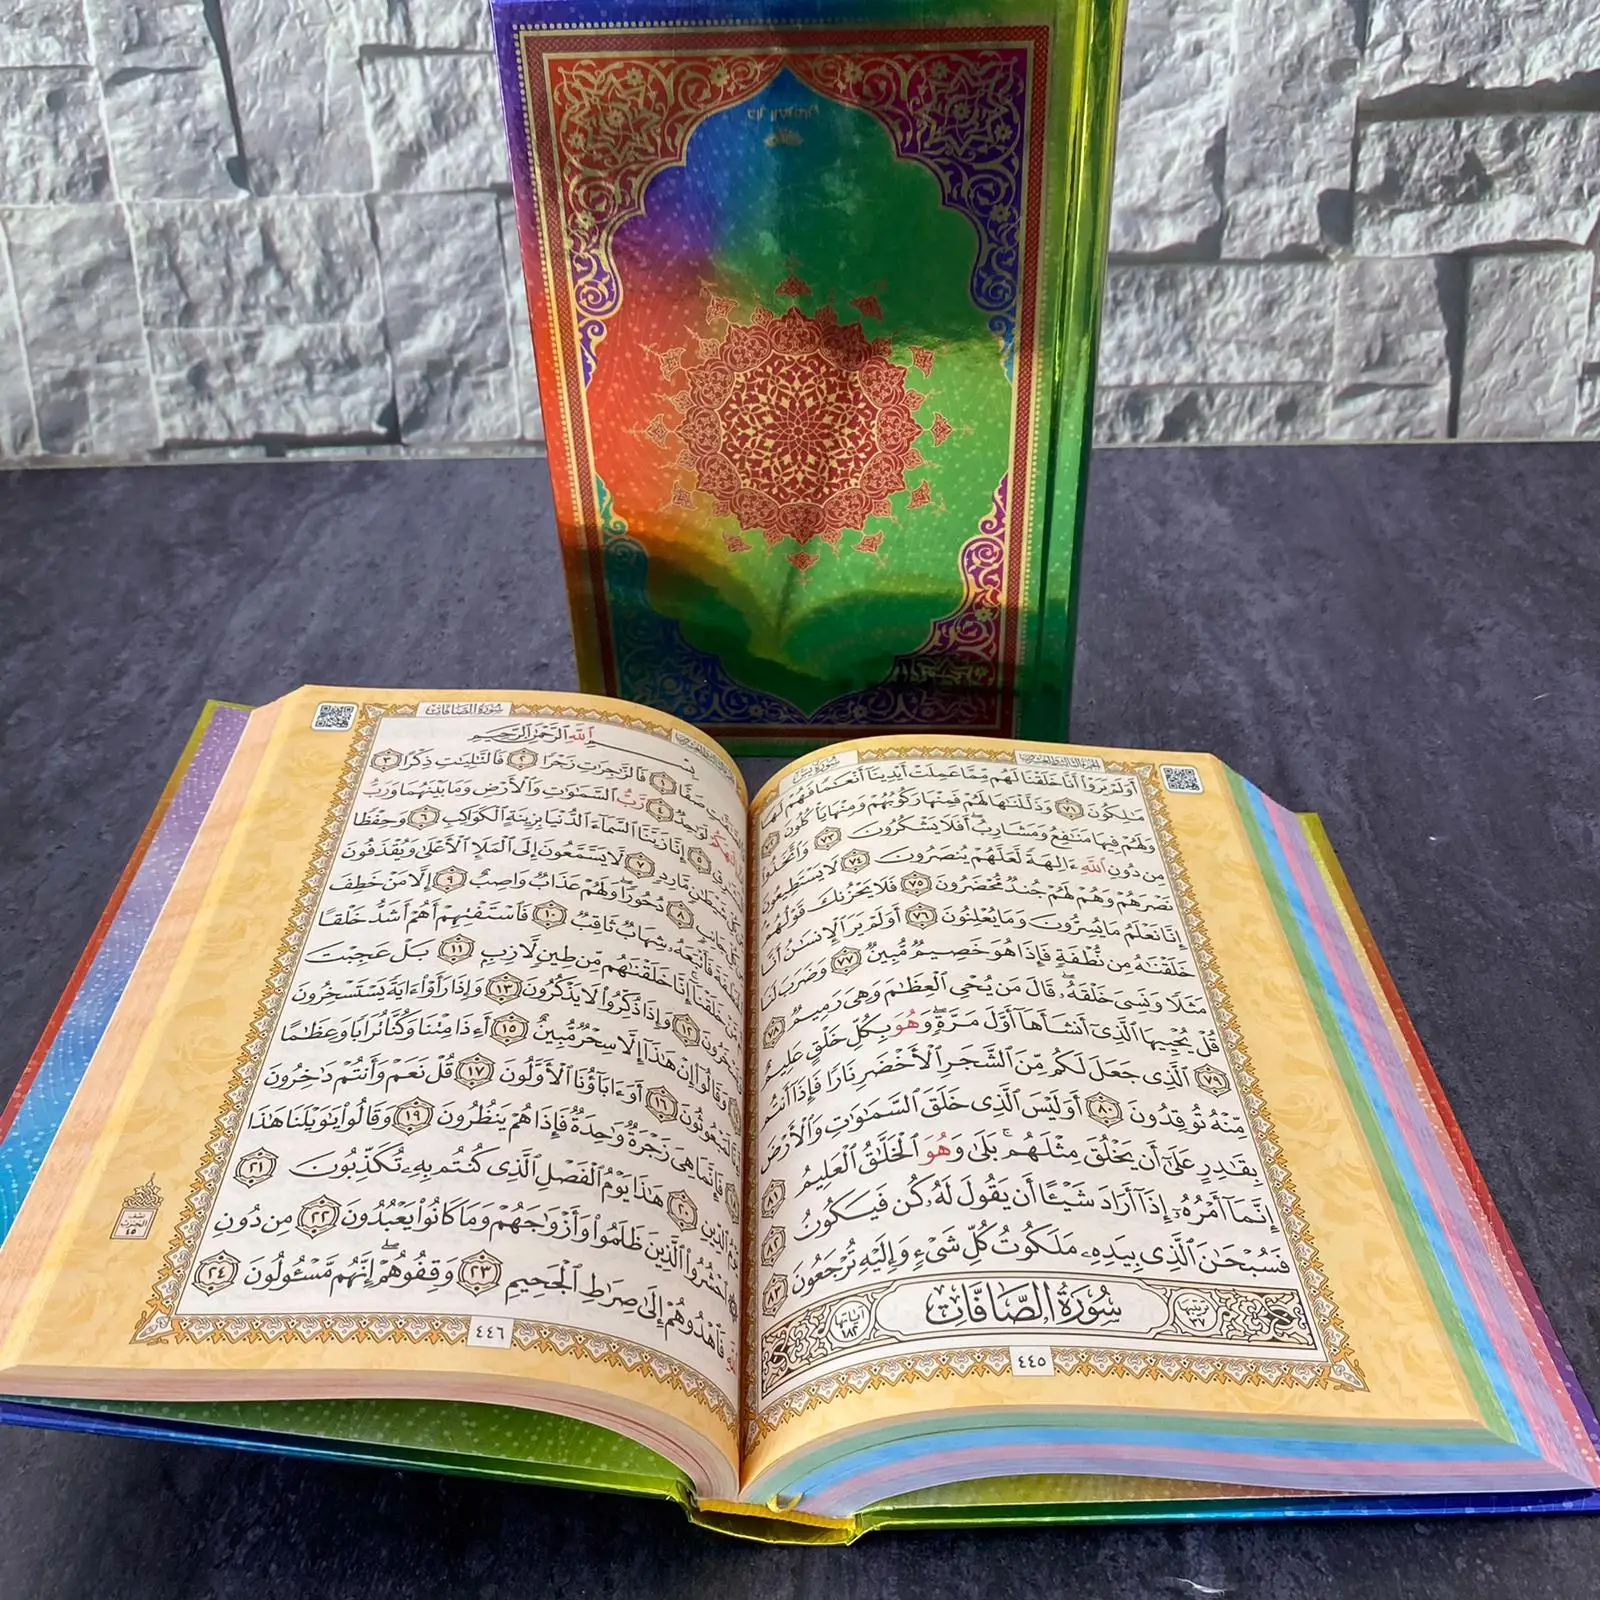 الجزء الثالث والعشرون
سورة يس
أَوَلَمْ يَرَوْا۟ أَنَّا خَلَقْنَا لَهُم مِّمَّا عَمِلَتْ أَيْدِينَآ أَنْعَٰمًا فَهُمْ لَهَا
مَٰلِكُونَ ٧١ وَذَلَّلْنَٰهَا لَهُمْ فَمِنْهَا رَكُوبُهُمْ وَمِنْهَا يَأْكُلُونَ ٧٢
وَلَهُمْ فِيهَا مَنَٰفِعُ وَمَشَارِبُ ۖ أَفَلَا يَشْكُرُونَ ٧٣ وَٱتَّخَذُوا۟
مِن دُونِ ٱللَّهِ ءَالِهَةً لَّعَلَّهُمْ يُنصَرُونَ ٧٤ لَا يَسْتَطِيعُونَ
نَصْرَهُمْ وَهُمْ لَهُمْ جُندٌ مُّحْضَرُونَ ٧٥ فَلَا يَحْزُنكَ قَوْلُهُمْ ۘ
إِنَّا نَعْلَمُ مَا يُسِرُّونَ وَمَا يُعْلِنُونَ ٧٦ أَوَلَمْ يَرَ ٱلْإِنسَٰنُ أَنَّا
خَلَقْنَٰهُ مِن نُّطْفَةٍ فَإِذَا هُوَ خَصِيمٌ مُّبِينٌ ٧٧ وَضَرَبَ لَنَا
مَثَلًا وَنَسِىَ خَلْقَهُۥ ۖ قَالَ مَن يُحْىِ ٱلْعِظَٰمَ وَهِىَ رَمِيمٌ ٧٨
قُلْ يُحْيِيهَا ٱلَّذِىٓ أَنشَأَهَآ أَوَّلَ مَرَّةٍ ۖ وَهُوَ بِكُلِّ خَلْقٍ عَلِيمٌ
٧٩ ٱلَّذِى جَعَلَ لَكُم مِّنَ ٱلشَّجَرِ ٱلْأَخْضَرِ نَارًا فَإِذَآ أَنتُم
مِّنْهُ تُوقِدُونَ ٨٠ أَوَلَيْسَ ٱلَّذِى خَلَقَ ٱلسَّمَٰوَٰتِ وَٱلْأَرْضَ
بِقَٰدِرٍ عَلَىٰٓ أَن يَخْلُقَ مِثْلَهُم ۚ بَلَىٰ وَهُوَ ٱلْخَلَّٰقُ ٱلْعَلِيمُ ٨١
إِنَّمَآ أَمْرُهُۥٓ إِذَآ أَرَادَ شَيْـًٔا أَن يَقُولَ لَهُۥ كُن فَيَكُونُ ٨٢
فَسُبْحَٰنَ ٱلَّذِى بِيَدِهِۦ مَلَكُوتُ كُلِّ شَىْءٍ وَإِلَيْهِ تُرْجَعُونَ ٨٣
ترتيبها ٣٧ سُورَةُ الصَّافَّاتِ آياتها ١٨٢
٤٤٥
سورة الصافات
بِسْمِ ٱللَّهِ ٱلرَّحْمَٰنِ ٱلرَّحِيمِ
صَفًّا ١ فَٱلزَّٰجِرَٰتِ زَجْرًا ٢ فَٱلتَّٰلِيَٰتِ ذِكْرًا ٣
لَوَٰحِدٌ ٤ رَّبُّ ٱلسَّمَٰوَٰتِ وَٱلْأَرْضِ وَمَا بَيْنَهُمَا وَرَبُّ
٥ إِنَّا زَيَّنَّا ٱلسَّمَآءَ ٱلدُّنْيَا بِزِينَةٍ ٱلْكَوَاكِبِ ٦ وَحِفْظًا
شَيْطَٰنٍ مَّارِدٍ ٧ لَّا يَسَّمَّعُونَ إِلَى ٱلْمَلَإِ ٱلْأَعْلَىٰ وَيُقْذَفُونَ
جَانِبٍ ٨ دُحُورًا ۖ وَلَهُمْ عَذَابٌ وَاصِبٌ ٩ إِلَّا مَنْ خَطِفَ
فَأَتْبَعَهُۥ شِهَابٌ ثَاقِبٌ ١٠ فَٱسْتَفْتِهِمْ أَهُمْ أَشَدُّ خَلْقًا
خَلَقْنَآ ۚ إِنَّا خَلَقْنَٰهُم مِّن طِينٍ لَّازِبٍۭ ١١ بَلْ عَجِبْتَ
١٢ وَإِذَا ذُكِّرُوا۟ لَا يَذْكُرُونَ ١٣ وَإِذَا رَأَوْا۟ ءَايَةً يَسْتَسْخِرُونَ
وَقَالُوٓا۟ إِنْ هَٰذَآ إِلَّا سِحْرٌ مُّبِينٌ ١٥ أَءِذَا مِتْنَا وَكُنَّا تُرَابًا وَعِظَٰمًا
لَمَبْعُوثُونَ ١٦ أَوَءَابَآؤُنَا ٱلْأَوَّلُونَ ١٧ قُلْ نَعَمْ وَأَنتُمْ دَٰخِرُونَ
فَإِنَّمَا هِىَ زَجْرَةٌ وَٰحِدَةٌ فَإِذَا هُمْ يَنظُرُونَ ١٩ وَقَالُوا۟ يَٰوَيْلَنَا هَٰذَا
ٱلدِّينِ ٢٠ هَٰذَا يَوْمُ ٱلْفَصْلِ ٱلَّذِى كُنتُم بِهِۦ تُكَذِّبُونَ ٢١
ٱحْشُرُوا۟ ٱلَّذِينَ ظَلَمُوا۟ وَأَزْوَٰجَهُمْ وَمَا كَانُوا۟ يَعْبُدُونَ ٢٢ مِن دُونِ
فَٱهْدُوهُمْ إِلَىٰ صِرَٰطِ ٱلْجَحِيمِ ٢٣ وَقِفُوهُمْ ۖ إِنَّهُم مَّسْـُٔولُونَ ٢٤
٤٤٦
الحزب
٤٥